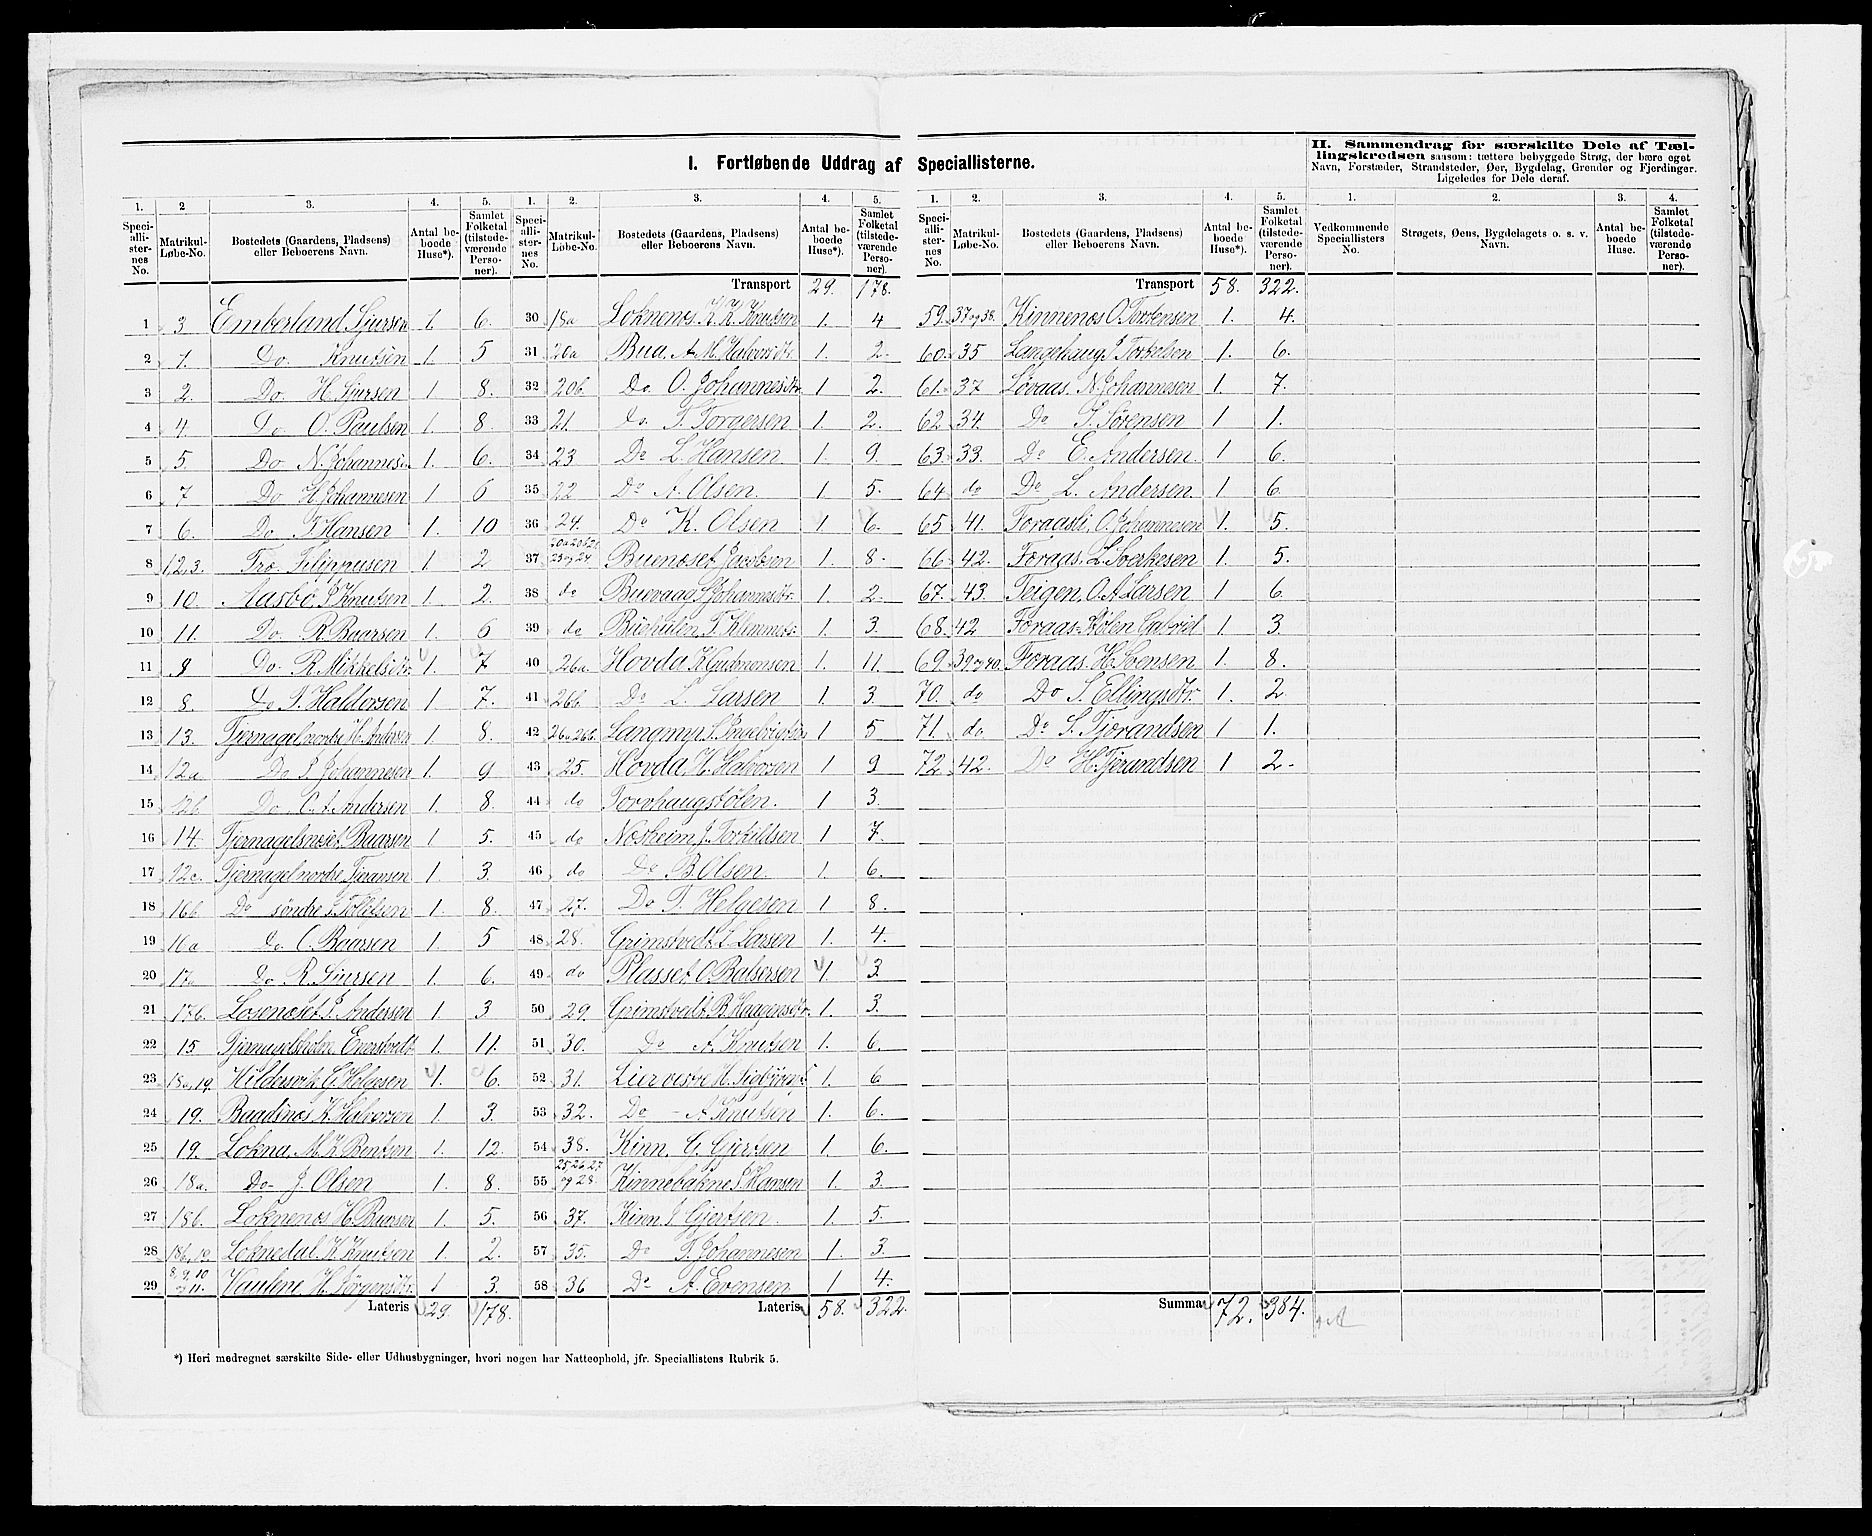 I. Fortløbende Uddrag af Speciallisterne.
II. Sammendrag for særskilte Dele af Tæl-
lingskredsen saasom: tættere bebyggede Strøg, der bære eget
Navn, Forstæder, Strandsteder, Øer, Bygdelag, Grender og Fjerdinger.
Ligeledes for Dele deraf.
1. 2 3. 4. 5.
Speciallisternes No. Matrikul-Løbe-No. Bostedets (Gaardens, Pladsens) eller Beboerens Navn. Antal beboede Huse*). Samlet Folketal (tilstedeværende Personer).
1 3 Emberland Sjursen 1. 6.
2 1. Do Knutsen 1. 5
3 2. Do. H. Sjursen 1 8.
4 4. Do O. Paulsen 1. 8.
5 5. Do N. Johannes 1. 6.
6 7 Do H. Johannesen 1 6
7 6. Do Hansen 1. 10
8 1,2,3. Filippusen 1 2
9 10. Aasbø Knutsen 1 2.
10 11. Do. R. Baarsen 1. 6
11 8 Do. R. Mikkelsdtr 1. 7
12 8. Do Haldorsen 1 7.
13 13. Tjernagel nordre H. Andersen 1 8.
14 12a Do Johannesen 1. 9
15 12b Do Andersen 1. 8.
16 14. Tjernagelsneset Baarsen 1 5.
17 12c. Tjernagel nordre Tjeransen 1 3.
18 16b Do søndre Tollefsen 1. 8.
19 16a Do. O. Baarsen 1. 5
20 17a Do R. Sjursen 1 6.
21 17b. Andersen 1 3
22 15 Tjernagelsholm 1. 11.
23 18a,19. Hildersvik G. Helgesen 1. 6.
24 19. Baadsnes K. Halvorsen 1 3.
25 19. Lokna, M. K. Bentsen 1. 12.
26 18a. Do J. Olsen 1. 8.
27 18b. Loknenes H. Baarsen 1. 5.
28 Loknedal. K. Knutsen 1. 2.
29 8, 9, 10 og 11. H. Jørgensdtr. 1 3.
Lateris 29. 178.
1. 2. 3. 4. 5.
Speciallisternes No. Matrikul-Løbe-No. Bostedets (Gaardens, Pladsens) eller Beboerens Navn. Antal beboede Huse*). Samlet Folketal (tilstedeværende Personer).
Transport 29. 178.
30 18a Loknenes K. K. Knutsen 1. 4
31 20a Bua, A. M. Halvorsdtr. 1. 2.
32 20b. Do. O. Johannesdtr 1 2.
33 21. do. T. Torgersen 1 2.
34 23 Do L. Hansen 1. 9.
35 22 Do A. Olsen. 1. 5.
36 24. Do K. Olsen 1 6.
37 23 og 24. Bueneset Jacobsen 1 8.
38 do Buevaag Johannesdtr. 1. 2.
39 do 1. 3.
40 26a. Hovda K. Gudmunsen 1. 11.
41 26b. Do L. Larsen 1. 3
42 26a 26b. Langmyr 1 5
43 25. Hovda, H. Halvorsen 1 9
44 do Torvhaugstølen. 1 3.
45 do Norheim J. Torkildsen 1 7.
46 do Do B. Olsen. 1. 6.
47 27. Do T. Helgesen 1 8.
48 28. Grimstvedt L. Larsen 1. 4.
49 do Plasset O. Balsersen 1. 3.
50 29. Grimstvedt B. Haagensdtr. 1. 3.
51 30. Do A. Knutsen 1. 6.
52 31. Lier vestre H. 1. 6
53 32. Do - A. Knutsen 1. 6.
54 38. Kinn, G. Gjertsen 1 6.
55 25,26,27 og 28. Kinnebakne Hansen 1. 3.
56 37. Kinn J. Gjertsen. 1. 5.
57 35. Do T. Johannesen 1. 3.
58 36 Do A. Evensen 1 4.
Lateris 58. 322.
1. 2. 3. 4. 5.
Speciallisternes No. Matrikul-Løbe-No. Bostedets (Gaardens, Pladsens) eller Beboerens Navn. Antal beboede Huse*). Samlet Folketal (tilstedeværende Personer).
Transport 58. 322.
59. 37 og 38. Kinnenes O. Torstensen 1. 4.
60. 35 Langehaug Torkelsen 1. 6.
61. 37 Løvaas. N. Johannesen 1. 7.
62 34. Do Sørensen 1 1.
63. 33. Do E. Andersen. 1 6.
64 do Do L. Andersen. 1 6.
65 41. Foraasli, O. Johannesen 1. 5.
66 42. Foraas. L. Sverkesen 1. 5.
67. 43. Teigen, O. A. Larsen 1 6.
68. 42 Foraas Stølen Gabriel 1. 3.
69. 39 og 40. Foraas. H. Svensen 1. 8.
70. do Do S. Ellingsdtr. 1. 2
71. do Do S. Tjerandsen 1 1.
72 42. Do H. Tjerandsen 1 2.
Summa 72. 384.
1. 2. 3. 4.
Vedkommende Speciallisters No. Strøgets, Øens, Bygdelagets o. s. v. Navn. Antal beboede Huse. Samlet Folketal (tilstedeværende Personer).
*) Heri medregnet særskilte Side- eller Udhusbygninger, hvori nogen har Natteophold, jfr. Speciallistens Rubrik 5.